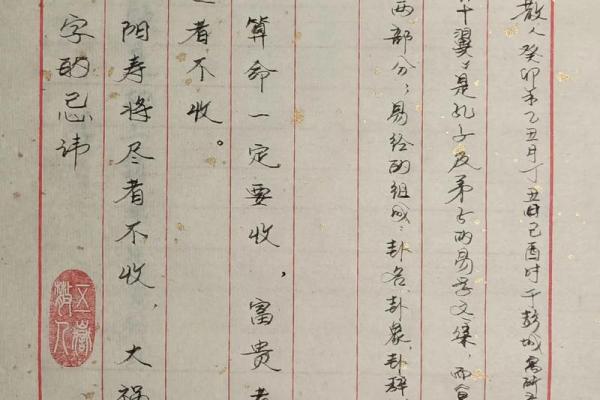 散人癸卯年乙丑月丁丑日己酉时于彭城
十翼，是孔子及弟子的易学文集，而
两部分；易经的组成：卦名、卦象、卦辞、
算命一定要收，富贵者
者不收。
阳寿将尽者不收，大祸
字的忌讳
五岳散人